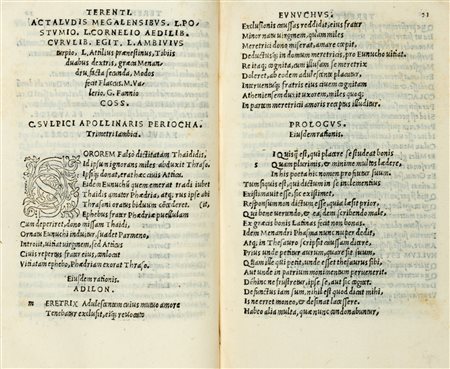 TERENTI.
ACTA LVDIS MEGALENSIBVS. L. PO-
STVMIO. L. CORNELIO AEDILIB.
CVRVLIB. EGIT. L. AMBIVIVS
turpio, L. Atilius prænestinus, Tibiis
duabus dextris, græca Menan-
dru, facta secunda, Modos
fecit Flaccus. M. Va-
lerio, G. Fannio
COSS.
C. SVLPICI APOLLINARIS PERIOCHA.
Trimetri iambici.
SOROREM Falso dictitatam Thaididis,
Id ipsum ignorans miles aduexit Thraso,
Ipsiq; donat, erat hæc ciuis Attica.
Eidem Eunuchũ quem emerat tradi iubet
Thaidis amator Phædria, atq; rus ipse abit
Thrasoni oratus biduum concederet.
Ephebus frater Phædriæ puellulam
Cum deperiret, dono missam Thaidi,
Ornatu Eunuchi induitur suadet Parmeno,
Introiit, uitiat uirginem, sed Atticus
Ciuis repertus frater eius, collocat
Vitiatam ephebo, Phædriam exorat Thraso.
Eiusdem rationis.
ADILON.
m ERETRIX Adulescentem cuius mutuo amore
Tenebatur exclusit, eiq; reuocato
EVNVCHVS. 21
Exclusionis caussas reddidit, eius frater
Minor natu uirginem, quam miles
Meretrici dono miserat, amare cœpit,
Deductusq; in domum meretricis, pro Eunucho uitiat.
Re itaq; cognita, cum illusam se meretrix
Doleret, ab eodem adulescente placatur.
Interuentu fratris eius ciuem cognitam
Atheniensem dus it uxorem, miles quoq;
In partem meretricii amoris receptus illuditur.
PROLOGVS.
Eiusdem rationis.
SI Quisq; est, qui placere se studeat bonis
Quam plurimis, & minime multos lædere,
In his poeta hic nomen profitetur suum.
Tum siquis est, qui dictum in se inclementius
Existimauit esse, sic existimet,
Responsum non dictum esse, quia læsit prior,
Qui bene uertendo, & eas scribendo male,
Ex græcis bonis Latinas fecit non bonas.
Idem Menandri Phasma nunc nuper dedit,
Atq; in Thesauro scripsit caussam dicere,
Prius unde petitur aurum, quare sit suum,
Quam ille qui petit, unde is sit thesaurus sibi,
Aut unde in patrium monimentum peruenerit.
Dehinc ne frustretur, ipse se, aut sic cogitet,
Defunctus iam sum, nihil est quod dicat mihi,
Is ne erret moneo, & desinat lacessere.
Habeo alia multa, quæ nunc condonabuntur,